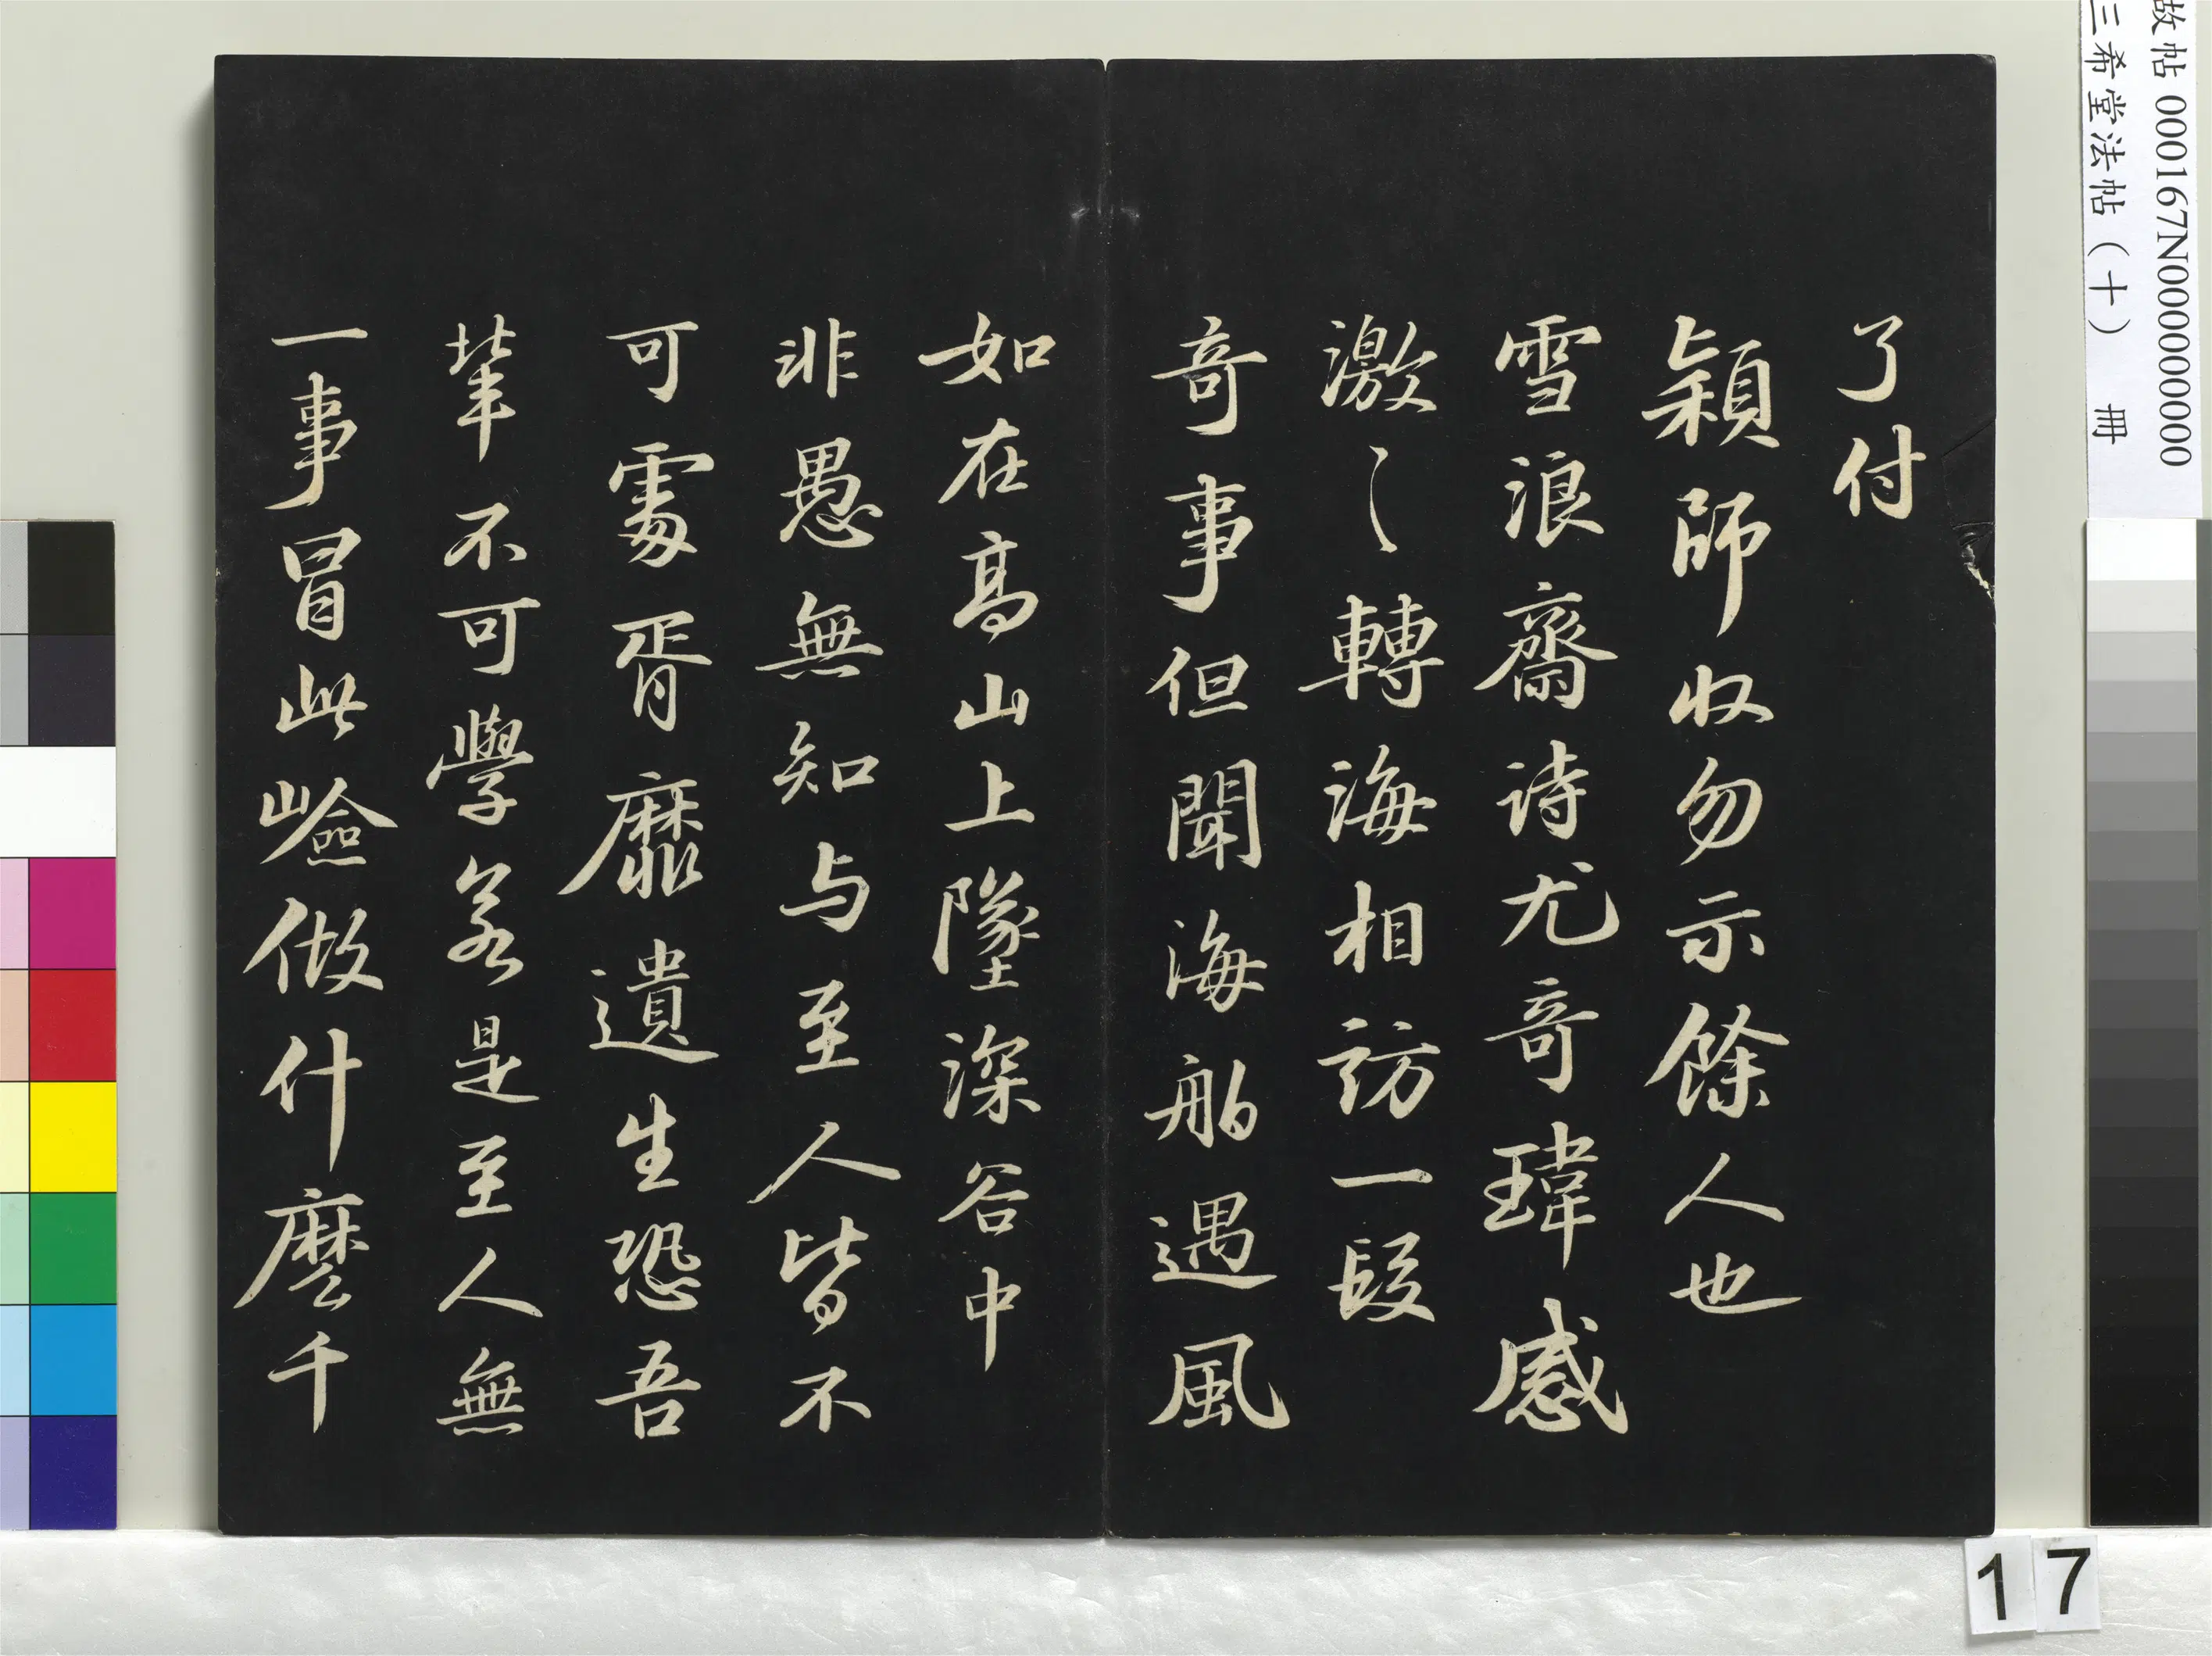 了付
穎師收勿示餘人也
雪浪齋詩尤奇瑋感
激〻轉海相訪一段
奇事但聞海舶遇風
如在高山上墜深谷中
非愚無知与至人皆不
可處胥靡遺生恐吾
輩不可學若是至人無
一事冒此嶮做什麽千
故帖 000167N000000000
三希堂法帖（十） 冊
17